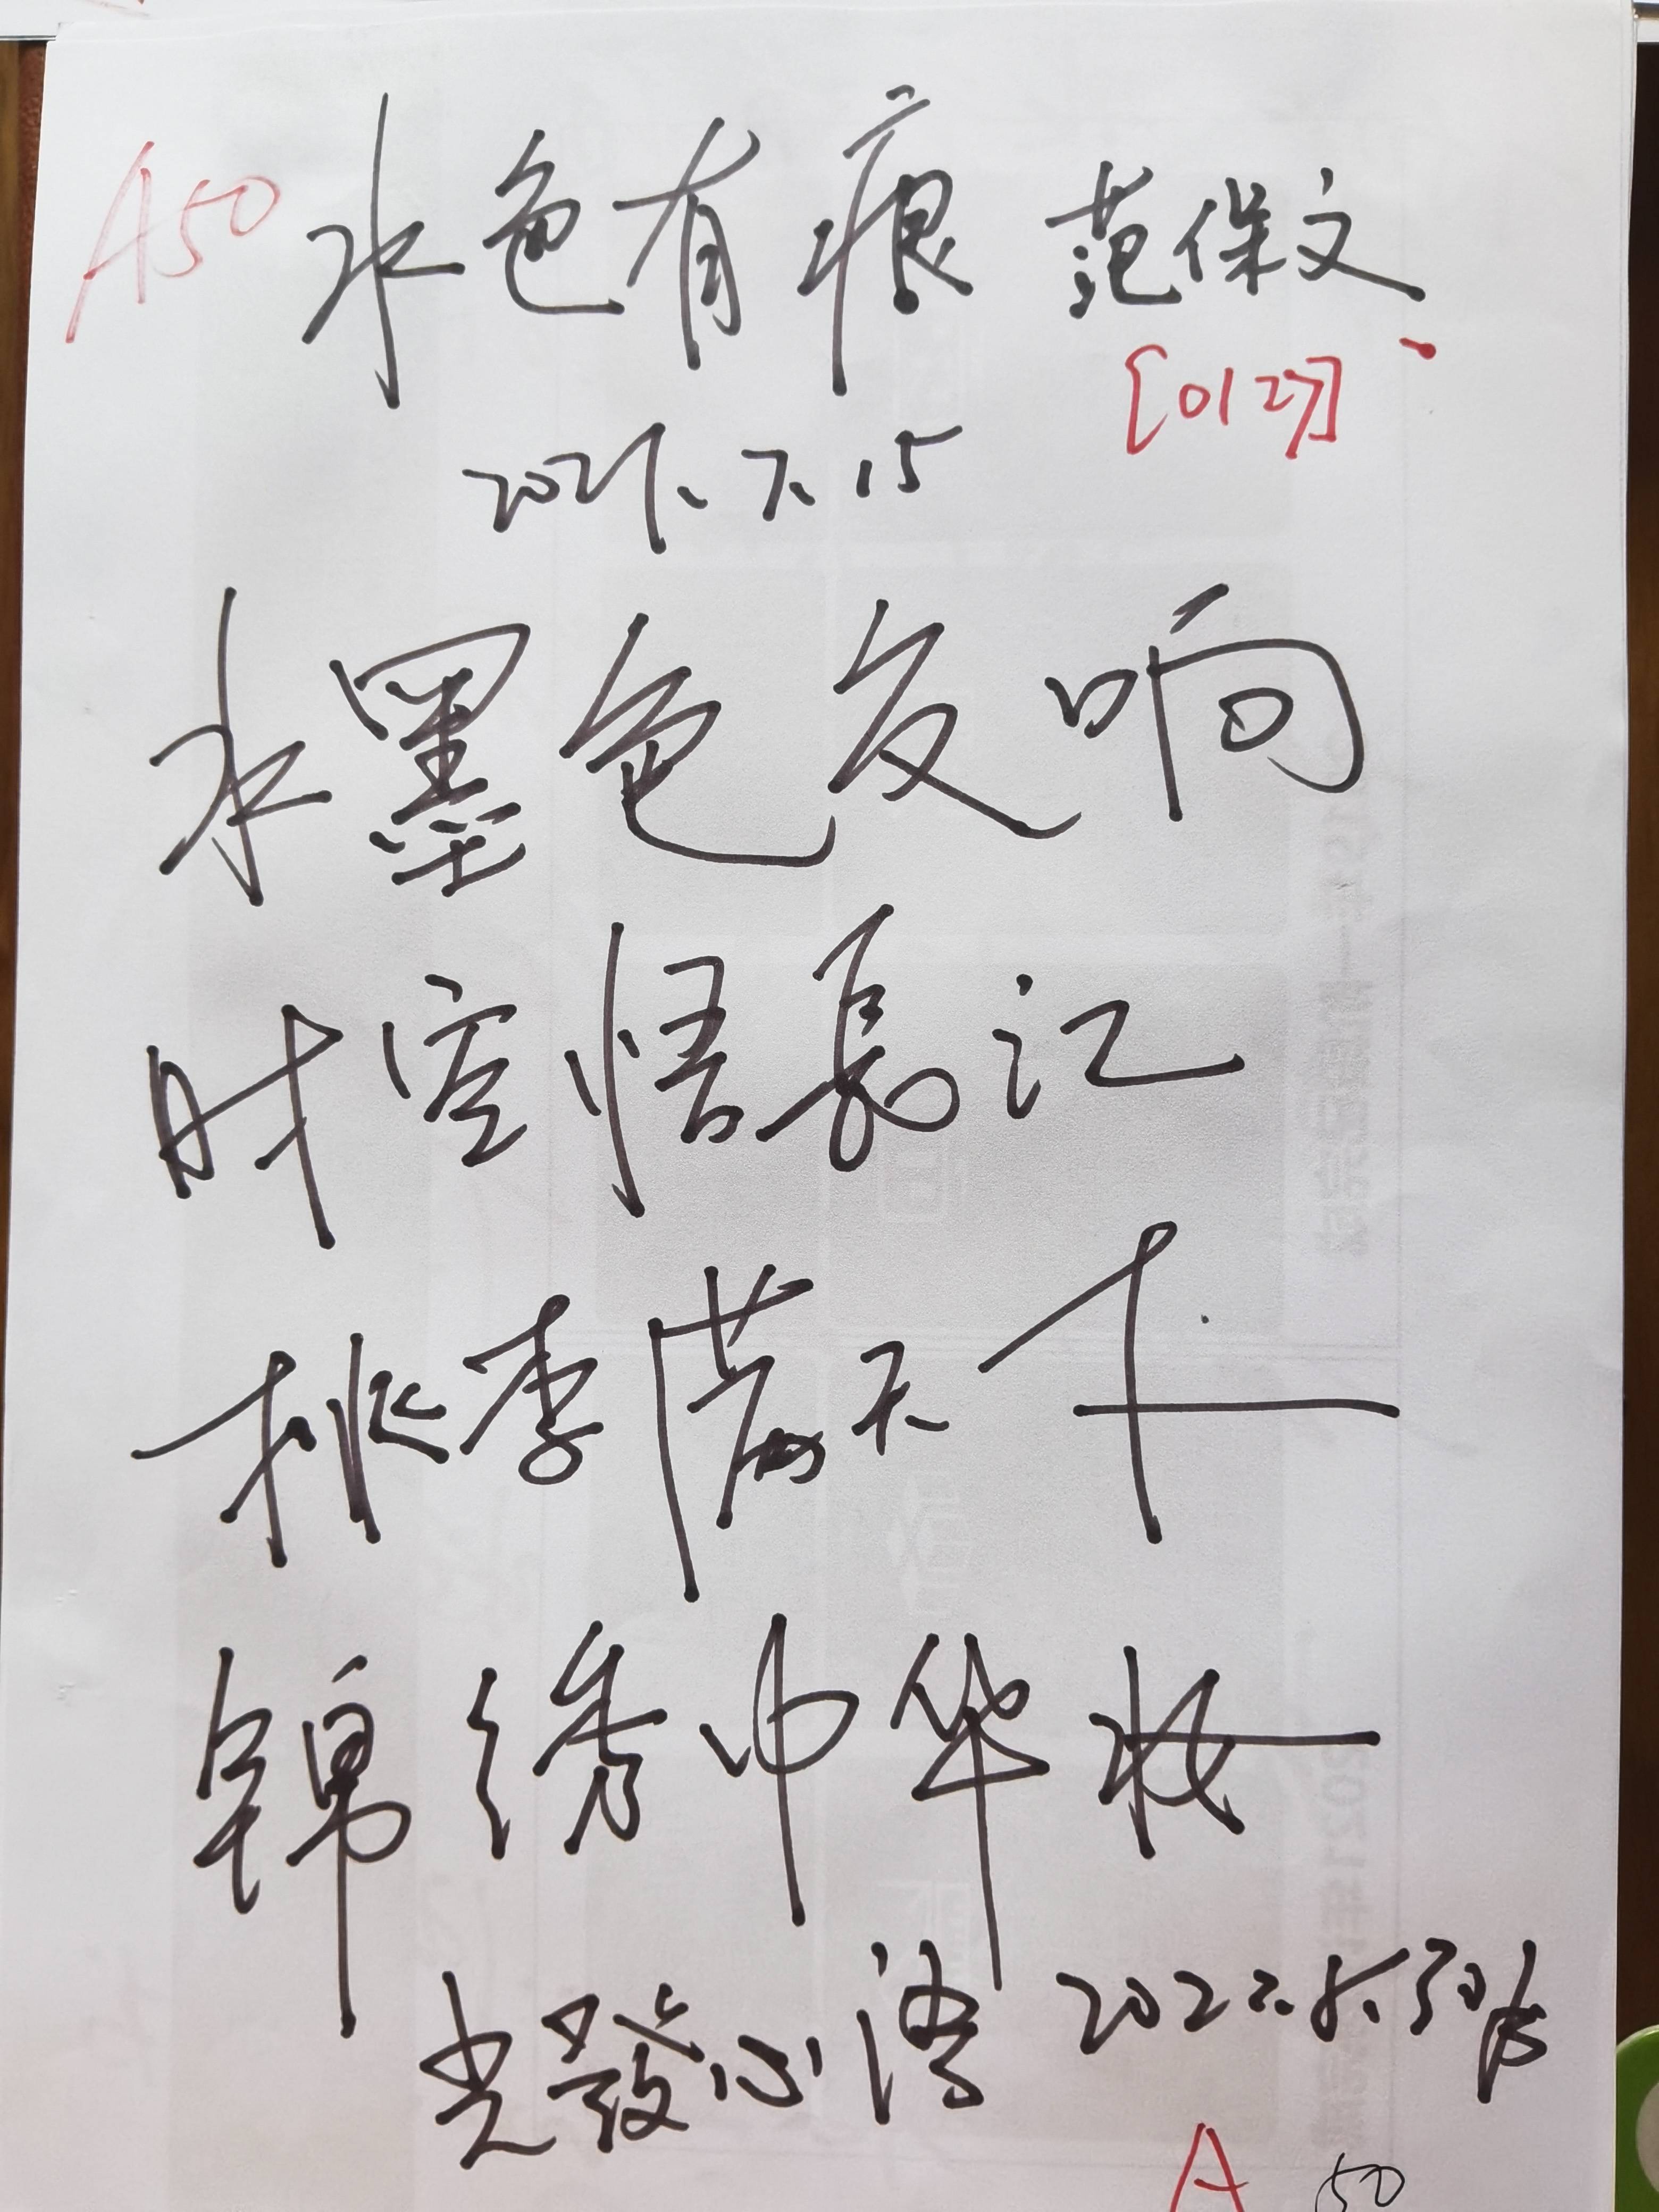 A50 水色有痕 范保文
[0127]
2021.7.15
水墨色反响
时空悟长江
桃李满天下
锦绣中华妆
光发心语 2022.5.30
A 50